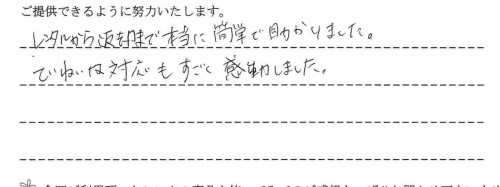 ご提供できるように努力いたします。
レンタルから返却まで本当に簡単で助かりました。
ていねいな対応もすごく感動しました。